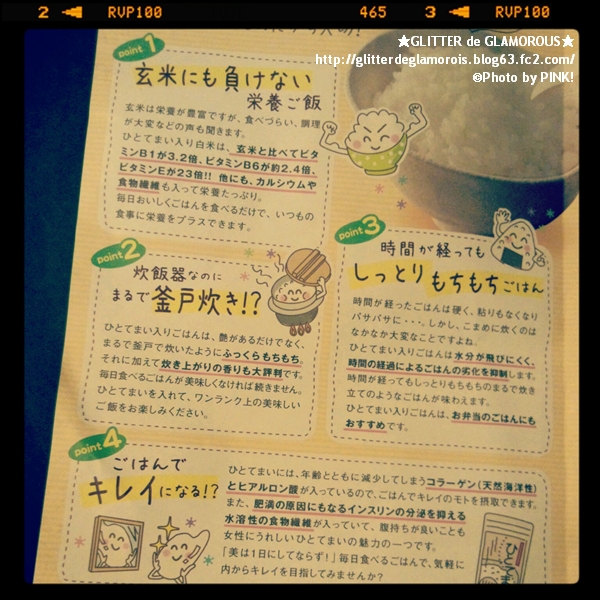 2 RVP100 465 3 RVP100
★GLITTER de GLAMOROUS★
http://glitterdeglamorois.blog63.fc2.com/
©Photo by PINK!
point 1
玄米にも負けない
栄養ご飯
玄米は栄養が豊富ですが、食べづらい、調理
が大変などの声も聞きます。
ひとてまい入り白米は、玄米と比べてビタ
ミンB1が3.2倍、ビタミンB6が約2.4倍、
ビタミンEが23倍!! 他にも、カルシウムや
食物繊維も入って栄養たっぷり。
毎日おいしくごはんを食べるだけで、いつもの
食事に栄養をプラスできます。
point 2
炊飯器なのに
まるで釜戸炊き!?
ひとてまい入りごはんは、艶があるだけでなく、
まるで釜戸で炊いたようにふっくらもちもち。
それに加えて炊き上がりの香りも大評判です。
毎日食べるごはんが美味しくなければ続きません。
ひとてまいを入れて、ワンランク上の美味しい
ご飯をお楽しみください。
point 3
時間が経っても
しっとりもちもちごはん
時間が経ったごはんは硬く、粘りもなくなり
パサパサに・・・。しかし、こまめに炊くのは
なかなか大変なことですよね。
ひとてまい入りごはんは水分が飛びにくく、
時間の経過によるごはんの劣化を抑制します。
時間が経ってもしっとりもちもちのまるで炊き
立てのようなごはんが味わえます。
ひとてまい入りごはんは、お弁当のごはんにも
おすすめです。
point 4
ごはんで
キレイになる!?
ひとてまいには、年齢とともに減少してしまうコラーゲン(天然海洋性)
とヒアルロン酸が入っているので、ごはんでキレイのモトを摂取できます。
また、肥満の原因にもなるインスリンの分泌を抑える
水溶性の食物繊維が入っていて、腹持ちが良いことも
女性にうれしいひとてまいの魅力の一つです。
「美は1日にしてならず!」毎日食べるごはんで、気軽に
内からキレイを目指してみませんか?